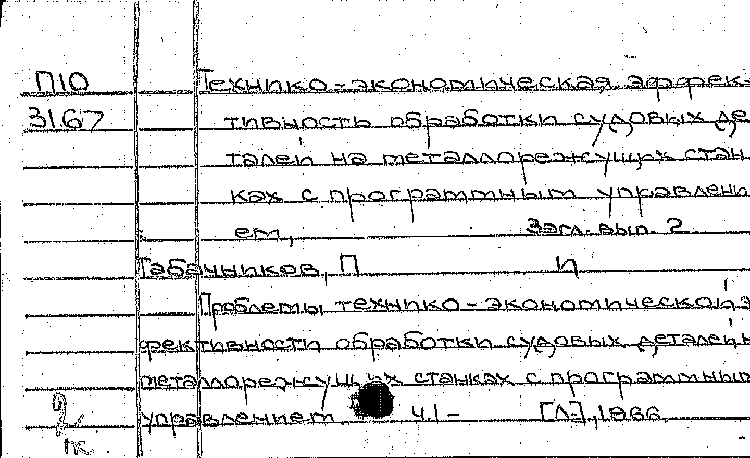 П10 Технико-экономическая эффек-
3167 тивность обработки судовых де
талей на металлорежущих стан
ках с программным управлени
ем, Загл. вып. 2
Табачников, П И
Проблемы технико-экономической э
фективности обработки судовых деталей н
металлорежущих станках с программным
управлением Ч.1- [Л.], 1966
2
пк